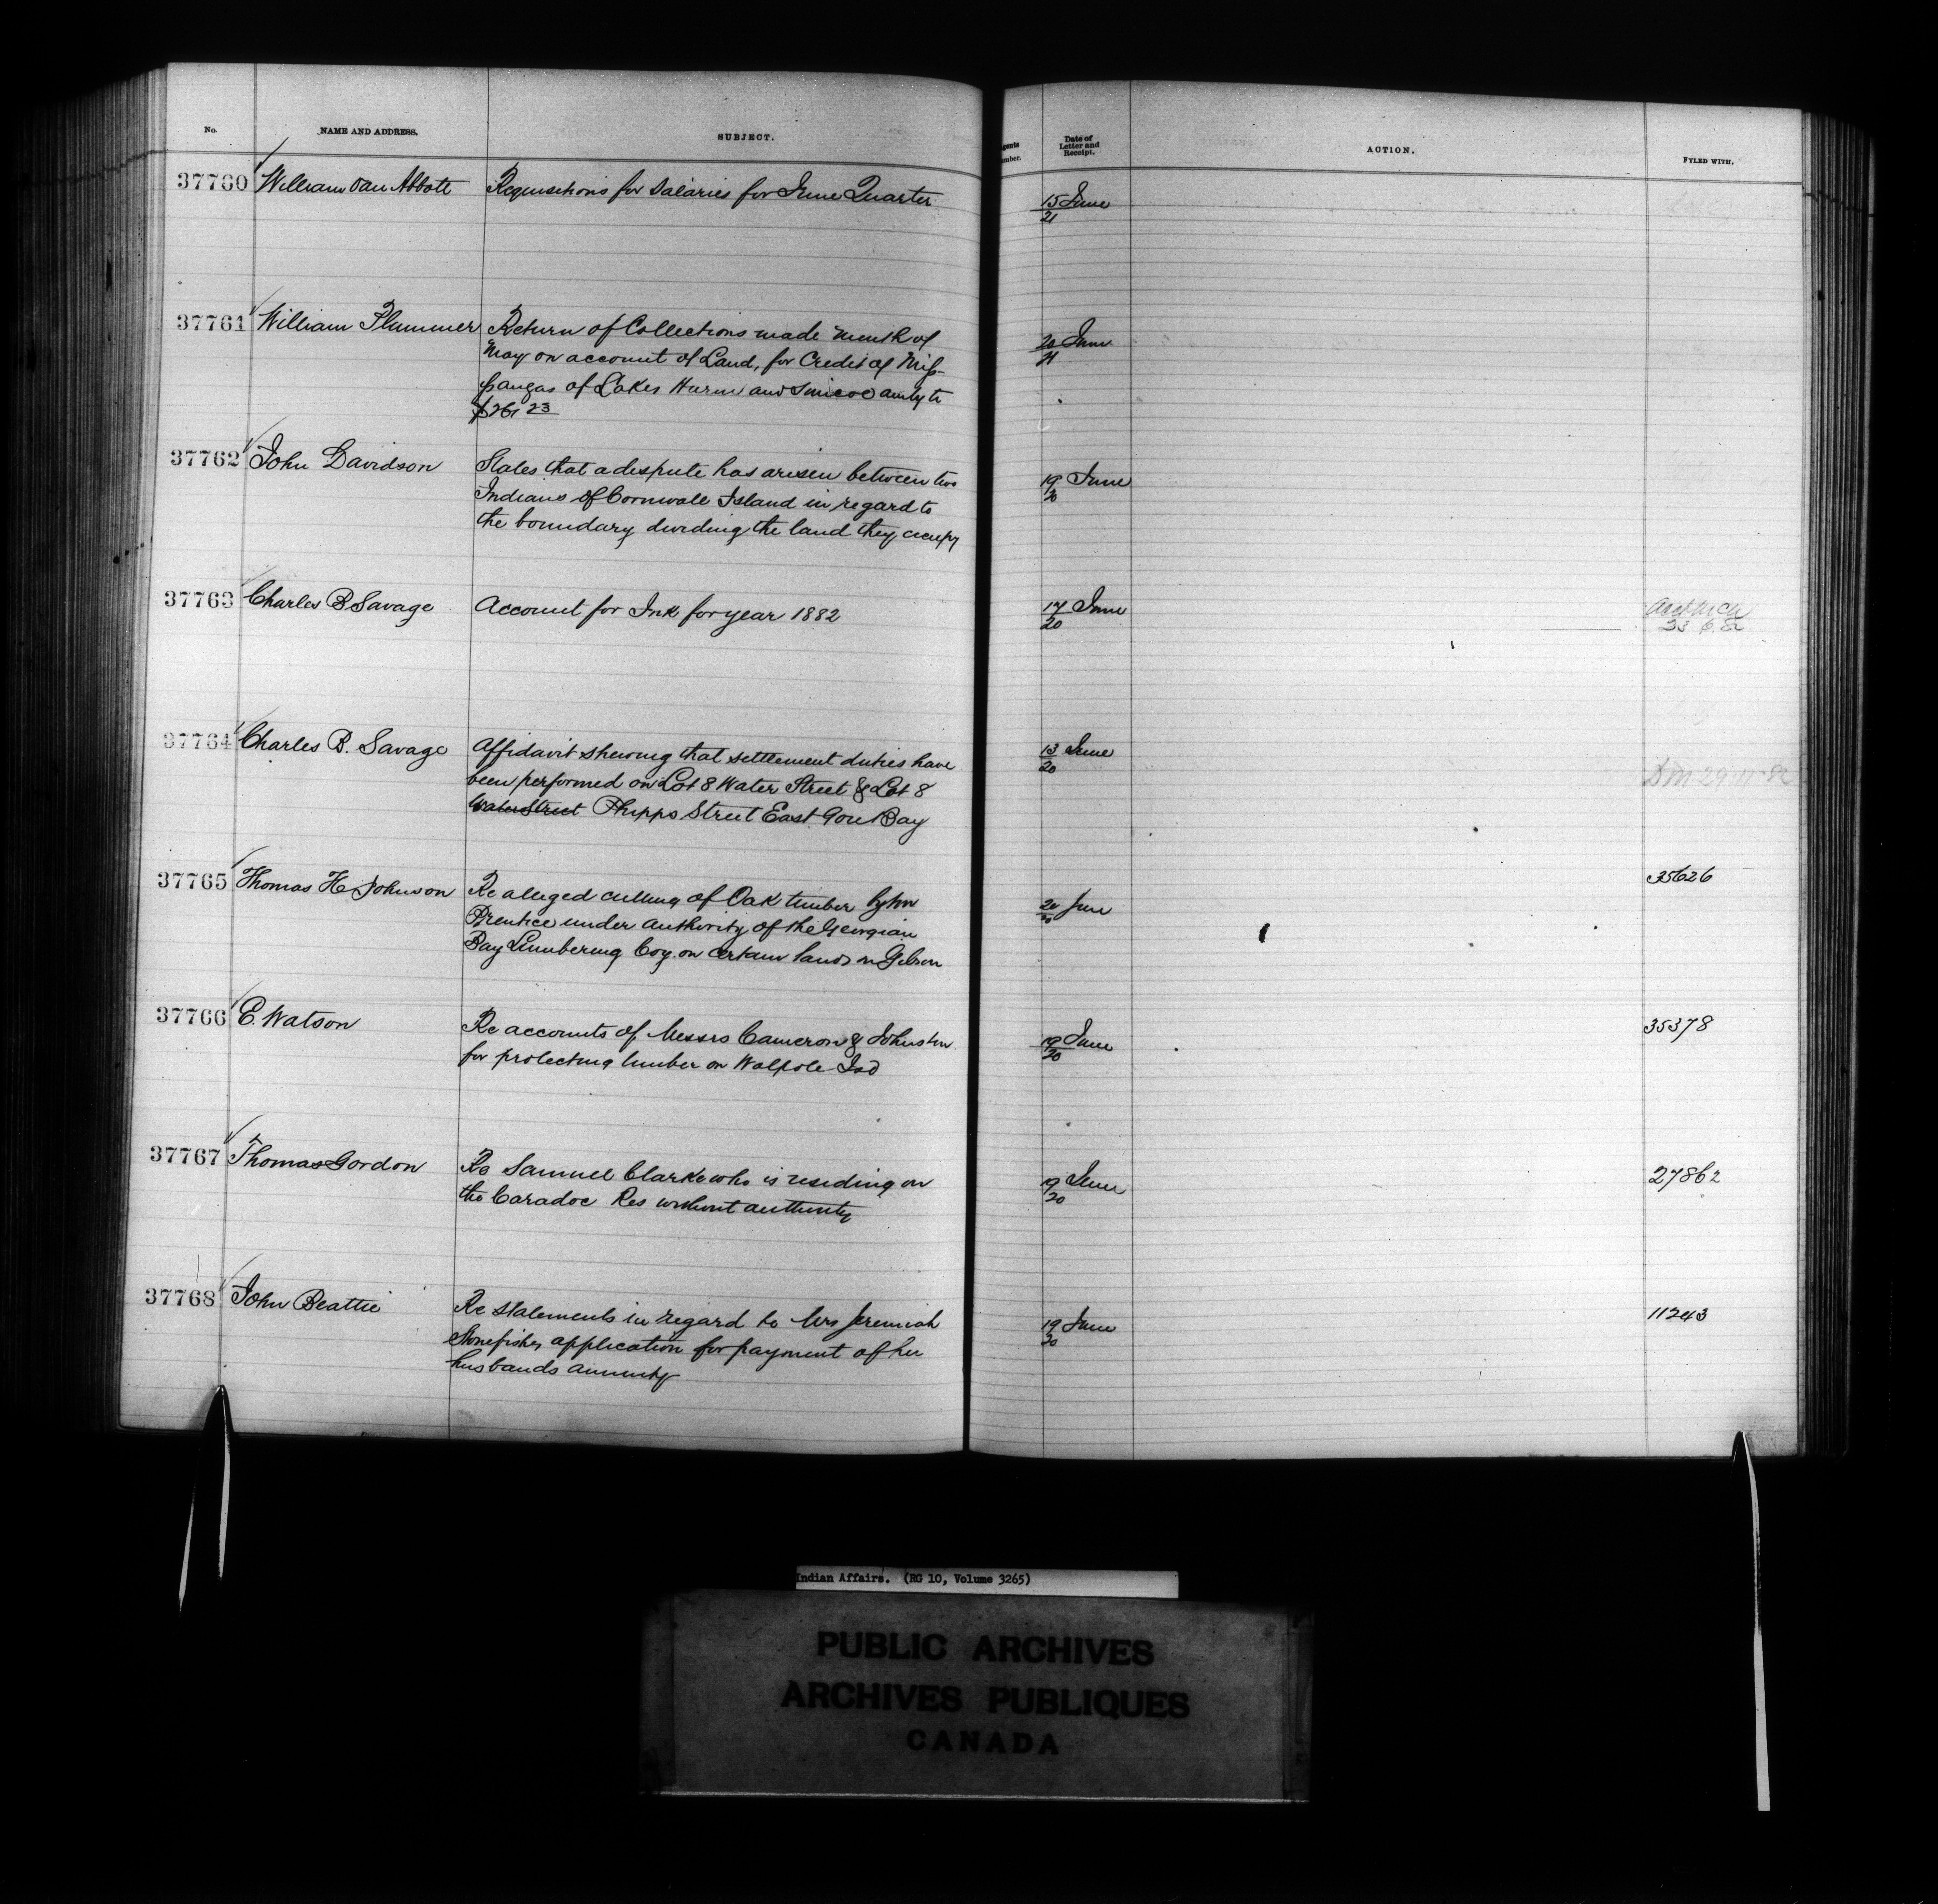 No. NAME AND ADDRESS. SUBJECT. gents mber. Date of Letter and Receipt. ACTION. FYLED WITH.
37760 William Van Abbott Requisitions for Salaries for June Quarter 15/21 June
37761 William Plummer Return of Collections made month of 20/21 June
May on account of Land, for Credit of Mis-
sangas of Lakes Huron and Simcoe amtg to
23
37762 John Davidson States that a dispute has arisen between two 19/20 June
Indians of Cornwall Island in regard to
the boundary dividing the land they occupy
37763 Charles B Savage Account for Ink for year 1882 17/20 June
23 6 82
37764 Charles B. Savage Affidavit shewing that settlement duties have 13/20 June
been performed on Lot 8 Water Street & Lot 8 29 11 82
Water Street Phipps Street East Gore Bay
37765 Thomas H Johnson Re alleged culling of Oak timber by 20/20 June 35626
Prentice under authority of the Georgian
Bay Lumbering Coy. on certain lands in Gibson
37766 E. Watson Re accounts of Messrs Cameron & Johnston 19/20 June 35378
for protecting lumber on Walpole Isd
37767 Thomas Gordon Re Samuel Clarke who is residing on 19/20 June 27862
the Caradoc Res without authority
37768 John Beattie Re statements in regard to Mrs Jeremiah 19/20 June 11243
Stonefisher application for payment of her
husbands annuity
Indian Affairs. (RG 10, Volume 3265)
PUBLIC ARCHIVES
ARCHIVES PUBLIQUES
CANADA